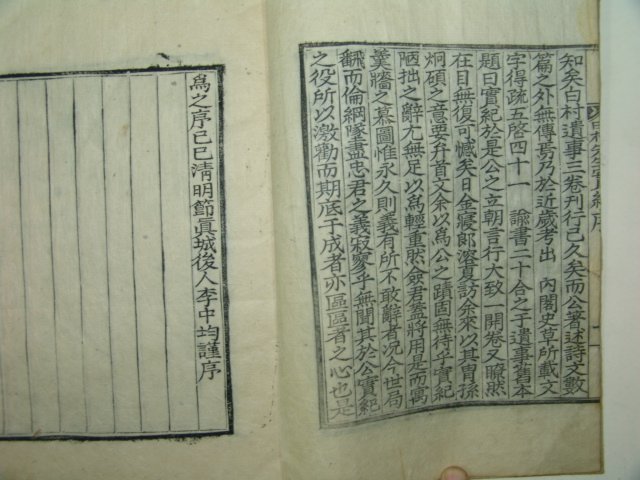 知矣白村遺事三卷刊行已久矣而公著述詩文數
篇之外無傳焉乃於近歲考出 內閣史草所載文
字得疏五啓四十一 諭書二十合之于遺事舊本
題曰實紀於是公之立朝言行大致一開卷又瞭然
在目無復可憾矣日金寢郎溶貢訪余來以其胄孫
炯碩之意要弁首文余以爲公之蹟固無待乎實紀
陋拙之辭尤無足以爲輕重然僉君蓋將用是而寓
羹牆之慕圖惟永久則義有所不敢辭者况今世局
飜而倫綱墜盡忠君之義寂寥乎無聞其於公實紀
之役所以激勸而期底于成者亦區區者之心也是
爲之序己巳淸明節眞城後人李中均謹序